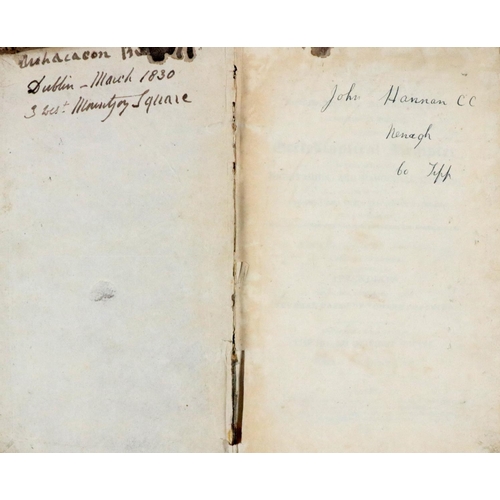 Dublin – March 1830
3 West Mountjoy Square
John Hannan CC
Nenagh
Co Tipp